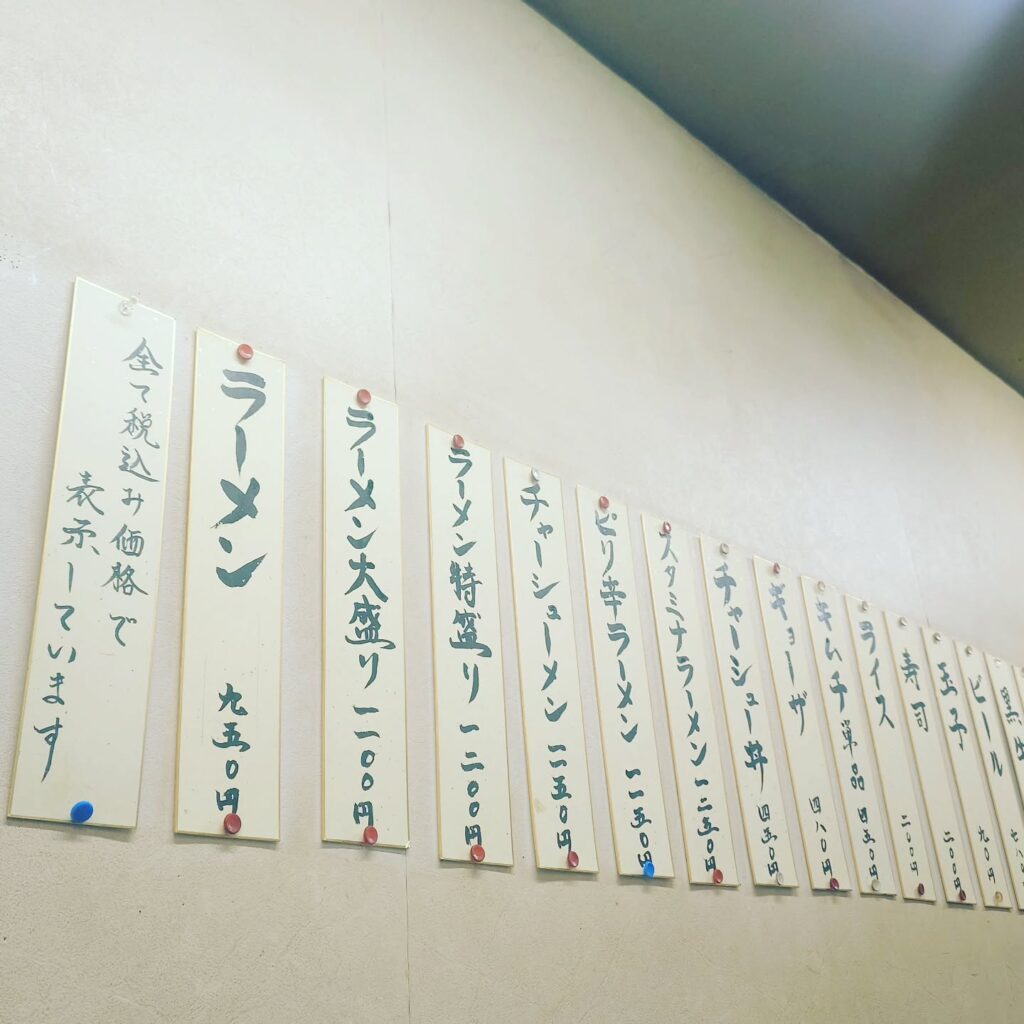 全て税込み価格で
表示しています
ラーメン 九五〇円
ラーメン大盛り 一一〇〇円
ラーメン特盛り 一二〇〇円
チャーシューメン 一二五〇円
ピリ辛ラーメン 一一五〇円
スタミナラーメン 一二五〇円
チャーシュー丼 四五〇円
ギョーザ 四八〇円
キムチ単品 四五〇円
ライス 二〇〇円
寿司 二〇〇円
玉子 九〇円
ビール